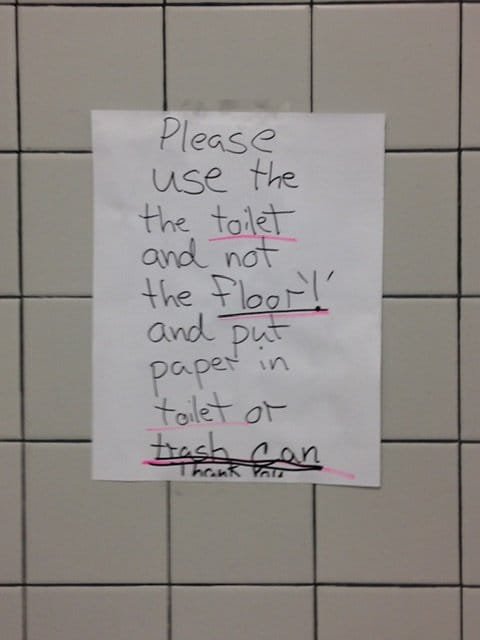 Please
use the
the toilet
and not
the floor!
and put
paper in
toilet or
trash can
Thank You